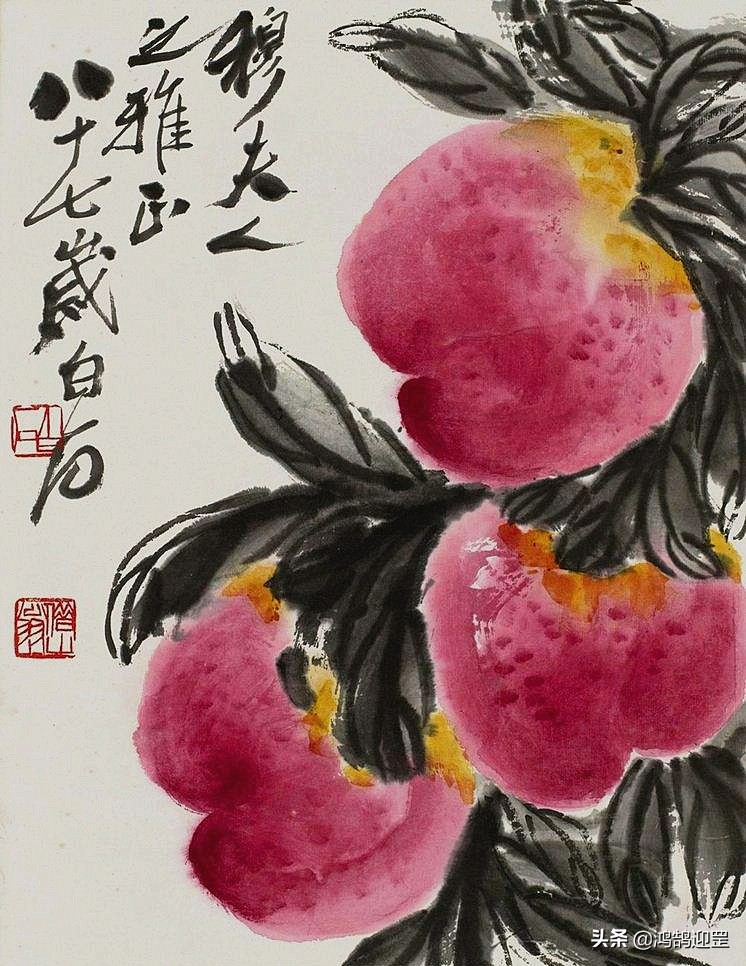 穆夫人
之雅正
八十七歲白石
白石
借山翁
头条 @鸿鹄迎罡